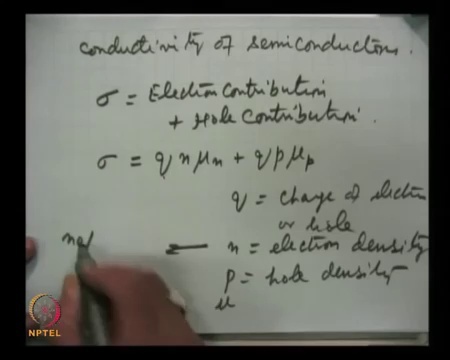 conductivity of semiconductors.
σ = Electron contribution
+ Hole contribution.
σ = q n μn + q p μp
q = charge of electron
or hole
n = electron density
p = hole density
μ
no/
NPTEL